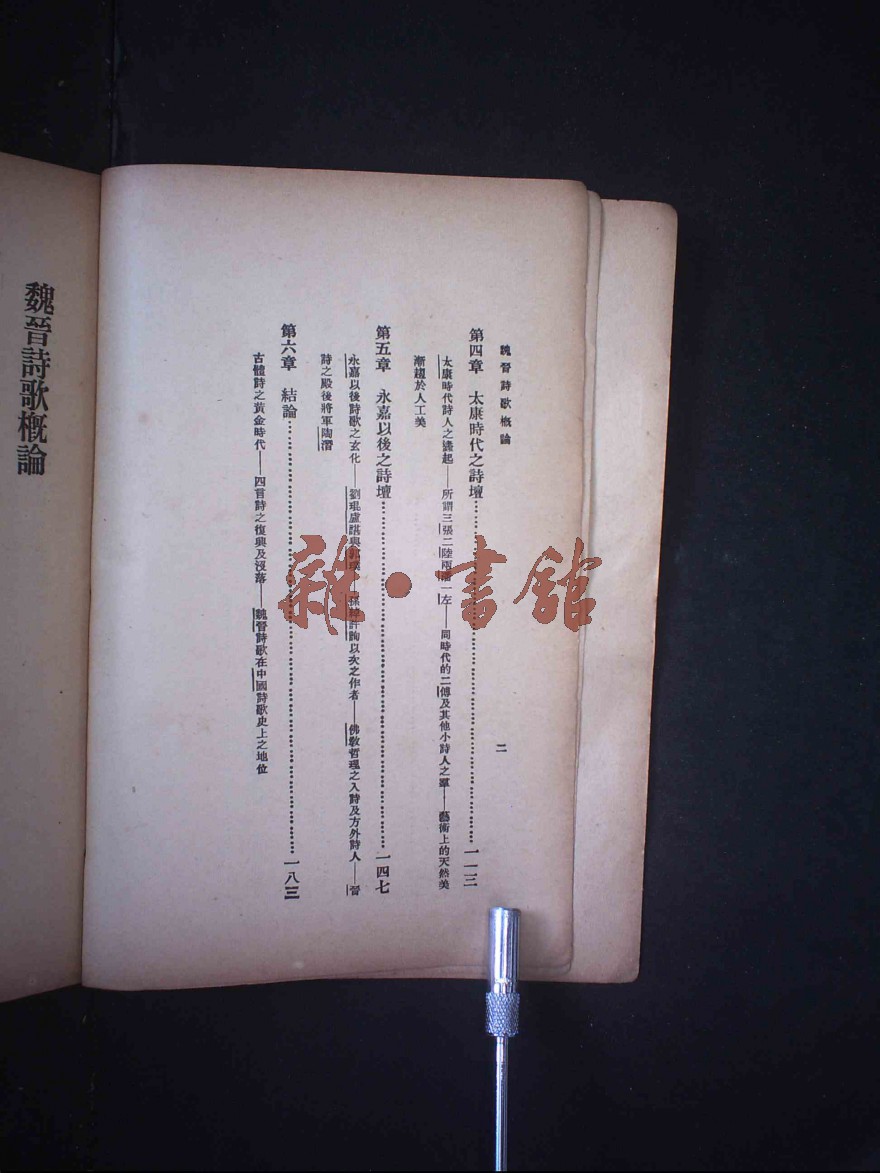 魏晉詩歌概論
二
第四章 太康時代之詩壇……一一三
太康時代詩人之起——所謂三張二陸兩潘一左——同時代的二傅及其他小詩人之羣——藝術上的天然美
漸趨於人工美
第五章 永嘉以後之詩壇……一四七
永嘉以後詩歌之玄化——劉琨盧諶與郭璞——孫綽許詢以次之作者——佛教哲理之入詩及方外詩人——晉
詩之殿後將軍陶潛
第六章 結論……一八三
古體詩之黃金時代——四言詩之復興及沒落——魏晉詩歌在中國詩歌史上之地位
魏晉詩歌概論
雜·書館